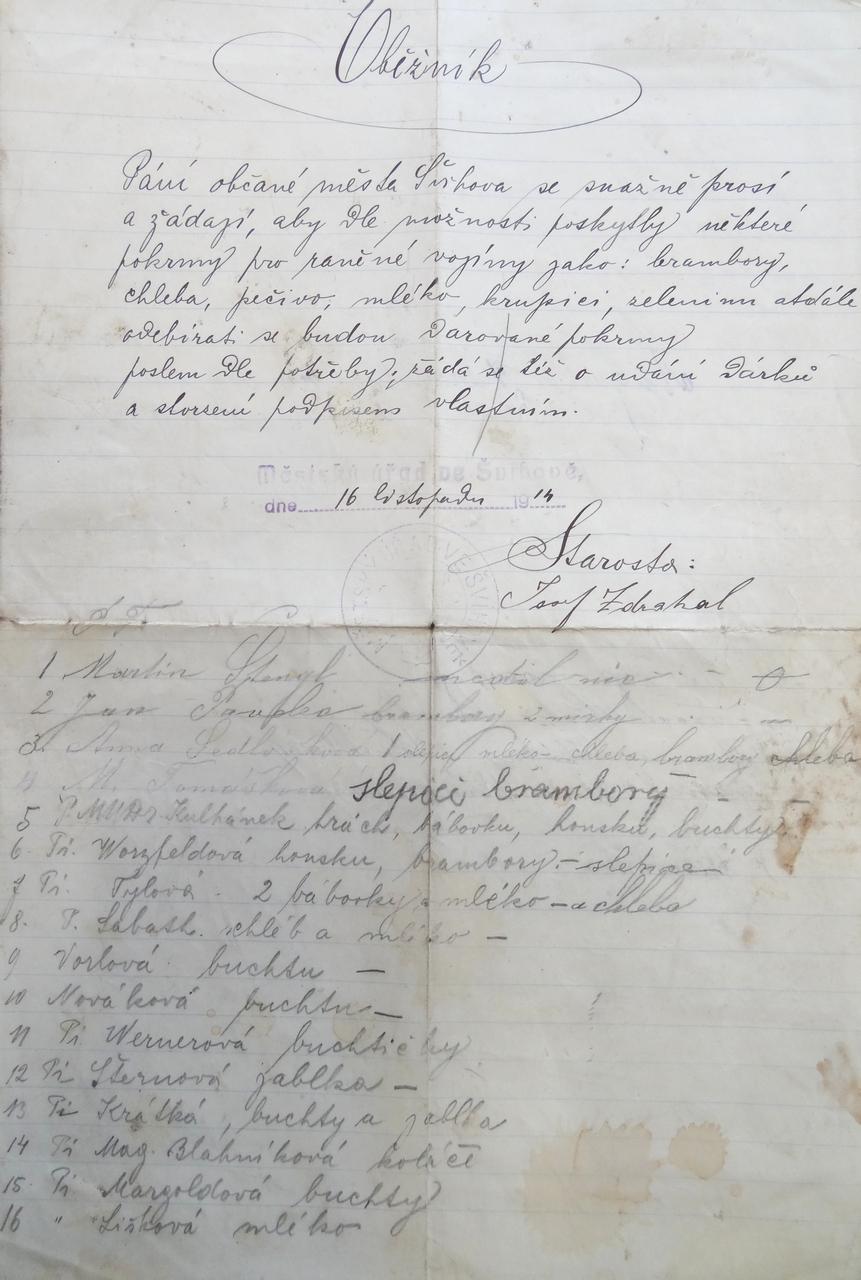 Oběžník
Páni občané města Švihova se snažně prosí
a žádají, aby dle možnosti poskytly některé
pokrmy pro raněné vojíny jako: brambory,
chleba, pečivo, mléko, krupici, zeleninu atdále
odebírati se budou darované pokrmy
poslem dle potřeby, žádá se též o udání dárků
a stvrzení podpisem vlastním.
Městský úřad ve Švihově,
dne 16 listopadu 1914
Starosta:
Josef Zdrahal
1 Martin nic - 0
2 Jan brambory 2 mírky
3. Anna mléko - chleba, brambory chleba
4 M. Tomášková slepici brambory -
5 P. MUDr Kulhánek hrách, bábovku, housku, buchty
6. Pí. Worzfeldová housku, brambory. - slepice
7 Pí. Tylová. 2 bábovky a mléko - a chleba
8. P. Sabath. chléb a mléko -
9 Vorlová buchtu -
10 Nováková buchtu -
11 Pí Wernerová buchtičky
12 Pí Šternová jablka -
13 Pí Krátká, buchty a jablka
14 Pí Mag. Bláhníková koláče
15. Pí Margoldová buchty
16 " Lišková mléko